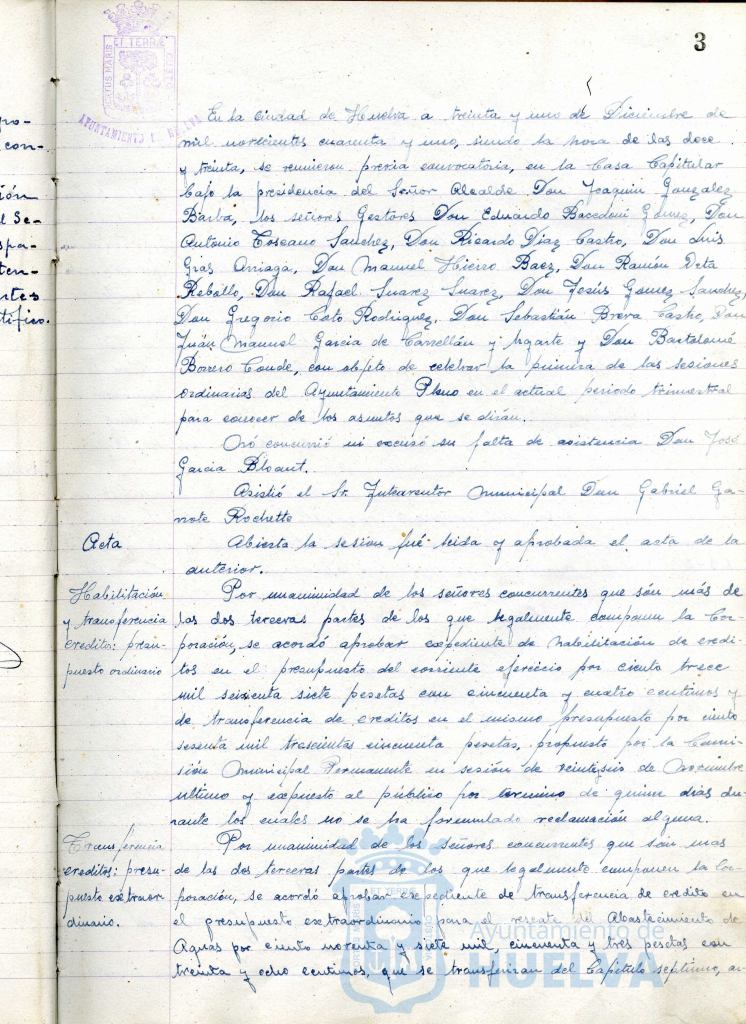 3
PORTUS MARIS ET TERRÆ CUSTODIA
AYUNTAMIENTO HUELVA
pro-
con-
ión
l Se-
spa-
ten-
ntes
tífico.
En la ciudad de Huelva a treinta y uno de Diciembre de
mil novecientos cuarenta y uno, siendo la hora de las doce
y treinta, se reunieron previa convocatoria, en la Casa Capitular
bajo la presidencia del Señor Alcalde Don Joaquin Gonzalez
Barba, los señores Gestores Don Eduardo Bacedoni Gomez, Don
Antonio Toscano Sanchez, Don Ricardo Diaz Castro, Don Luis
Gras Arriaga, Don Manuel Hierro Baez, Don Ramón Reta
Rebollo, Don Rafael Suarez Suarez, Don Jesús Gomez Sanchez,
Don Gregorio Coto Rodriguez, Don Sebastián Breva Castro, Don
Juan Manuel Garcia de Carrellán y Ugarte y Don Bartolomé
Borrero Conde, con objeto de celebrar la primera de las sesiones
ordinarias del Ayuntamiento Pleno en el actual periodo trimestral
para conocer de los asuntos que se dirán.
No concurrió ni excusó su falta de asistencia Don José
Garcia
Asistió el Sr. Interventor Municipal Don Gabriel Ga-
rrote Rochette
Acta
Abierta la sesión fué leida y aprobada el acta de la
anterior.
Habilitación
y transferencia
credito: presu-
puesto ordinario
Por unanimidad de los señores concurrentes que son más de
las dos terceras partes de los que legalmente componen la Cor-
poración, se acordó aprobar expediente de habilitación de credi-
tos en el presupuesto del corriente ejercicio por ciento trece
mil seisenta siete pesetas con cincuenta y cuatro centimos y
de transferencia de creditos en el mismo presupuesto por ciento
sesenta mil trescientas cincuenta pesetas, propuesto por la Comi-
sión Municipal Permanente en sesión de veintiseis de Noviembre
ultimo y expuesto al público por termino de quince dias du-
rante los cuales no se ha formulado reclamación alguna.
Transferencia
creditos: presu-
puesto extraor-
dinario.
Por unanimidad de los señores concurrentes que son mas
de las dos terceras partes de los que legalmente componen la Cor-
poración, se acordó aprobar expediente de transferencia de credito en
el presupuesto extraordinario para el rescate del Abastecimiento de
Aguas por ciento noventa y siete mil, cincuenta y tres pesetas con
treinta y ocho centimos, que se transferiran del Capitulo septimo, ar-
Ayuntamiento de
HUELVA